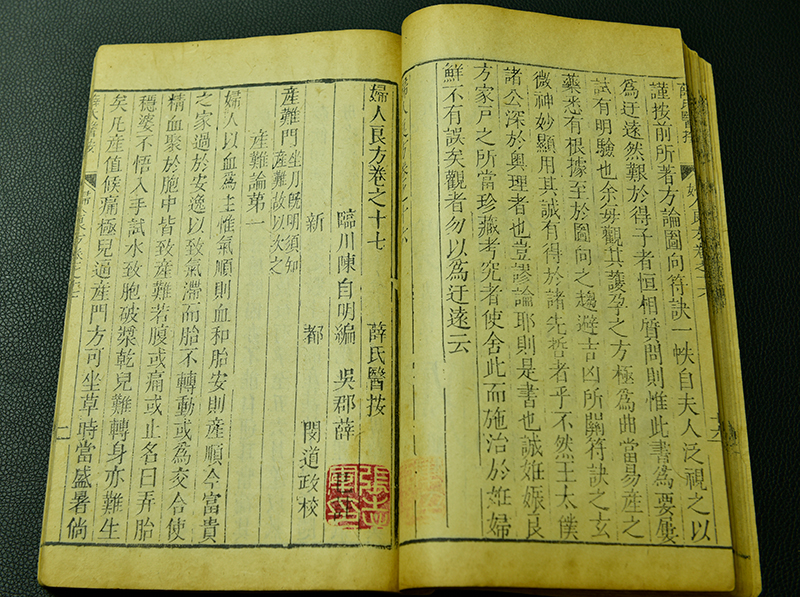 薛氏醫按 婦人良方卷之十六
謹按前所著方論圖向符訣一帙自夫人泛視之以
爲迂遠然艱於得子者恒相質問則惟此書爲要屢
試有明驗也余每觀其護孕之方極爲曲當易産之
藥悉有根據至於圖向之趨避吉凶所關符訣之玄
微神妙顯用其誠有得於諸先哲者乎不然王太僕
諸公深於奥理者也豈謬論耶則是書也誠姙娠良
方家戸之所當珍藏考究者使舍此而施治於姙婦
鮮不有誤矣觀者勿以爲迂遠云
婦人良方卷之十六
婦人良方卷之十七 薛氏醫按
臨川陳自明編 吳郡薛
新 都 閔道政校
産難門 坐月旣明須知
産難故以次之
産難論第一
婦人以血爲主惟氣順則血和胎安則産順今富貴
之家過於安逸以致氣滯而胎不轉動或爲交合使
精血聚於胞中皆致産難若腹或痛或止名曰弄胎
穏婆不悟入手試水致胞破漿乾兒難轉身亦難生
矣凡産值候痛極兒逼産門方可坐草時當盛暑倘
薛氏醫按